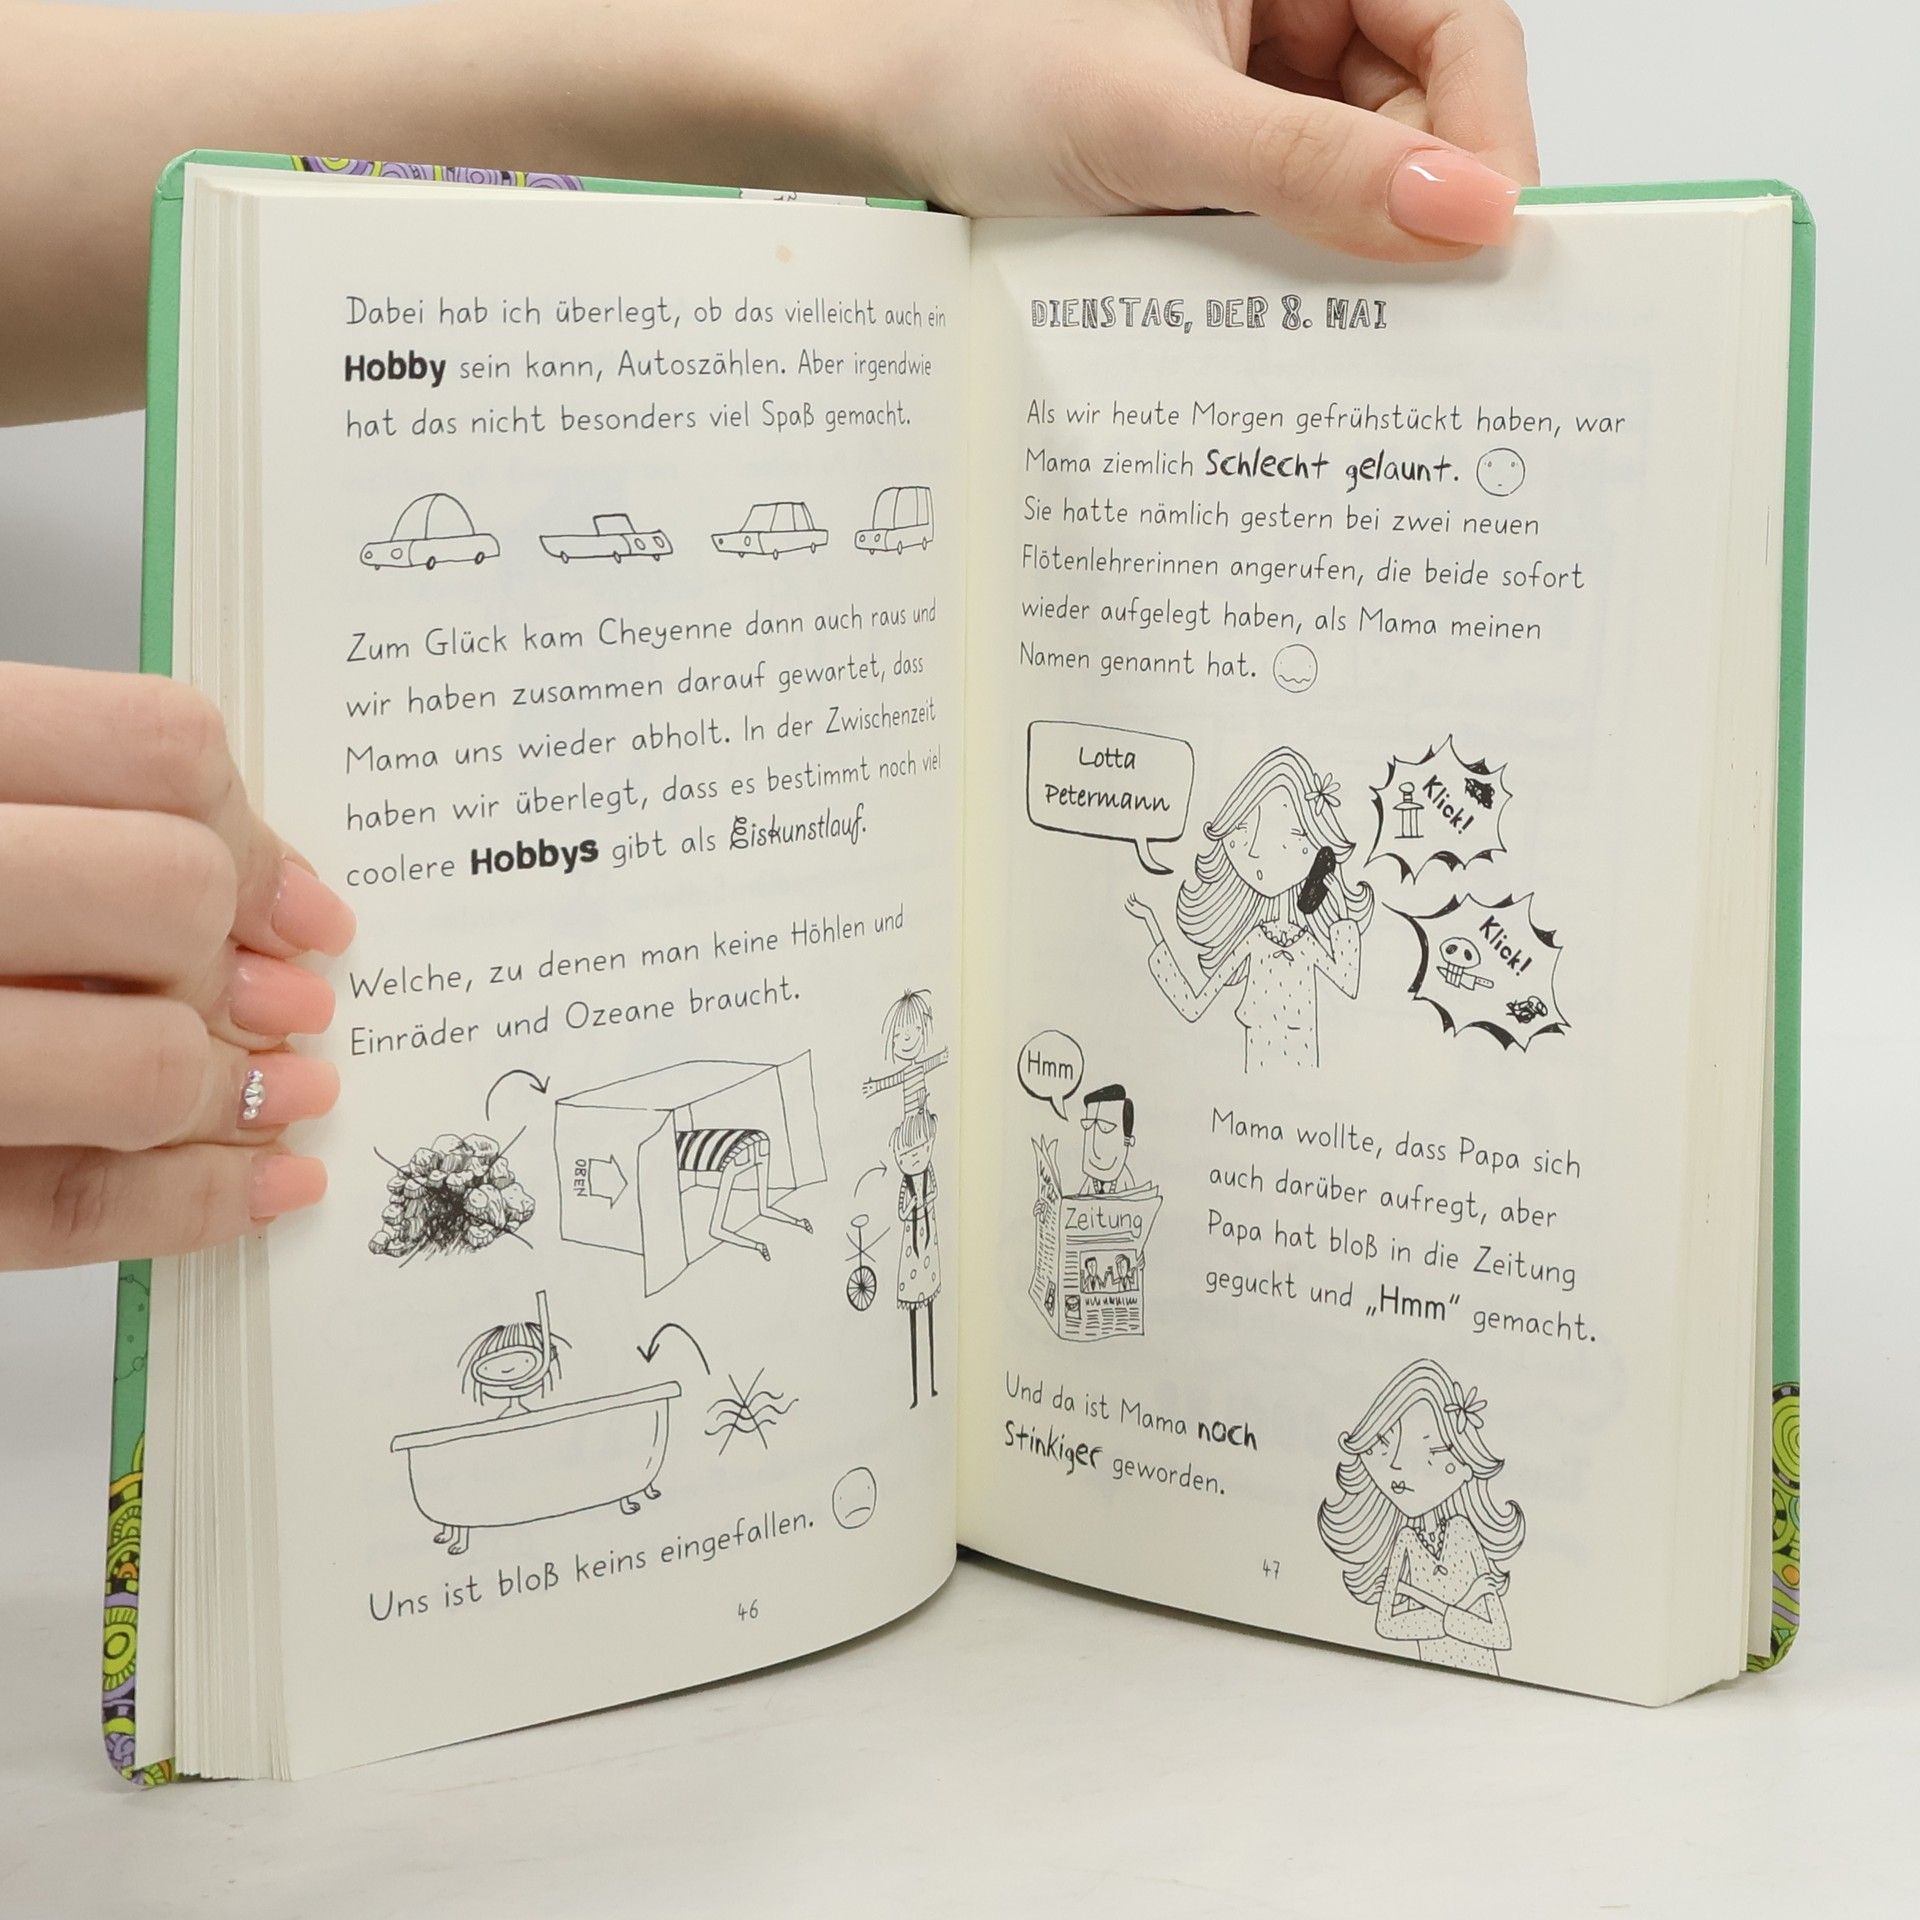 Dabei hab ich überlegt, ob das vielleicht auch ein
Hobby sein kann, Autoszählen. Aber irgendwie
hat das nicht besonders viel Spaß gemacht.
Zum Glück kam Cheyenne dann auch raus und
wir haben zusammen darauf gewartet, dass
Mama uns wieder abholt. In der Zwischenzeit
haben wir überlegt, dass es bestimmt noch viel
coolere Hobbys gibt als Eiskunstlauf.
Welche, zu denen man keine Höhlen und
Einräder und Ozeane braucht.
OBEN
Uns ist bloß keins eingefallen.
46
DIENSTAG, DER 8. MAI
Als wir heute Morgen gefrühstückt haben, war
Mama ziemlich Schlecht gelaunt.
Sie hatte nämlich gestern bei zwei neuen
Flötenlehrerinnen angerufen, die beide sofort
wieder aufgelegt haben, als Mama meinen
Namen genannt hat.
Lotta
Petermann
Klick!
Klick!
Hmm
Zeitung
Mama wollte, dass Papa sich
auch darüber aufregt, aber
Papa hat bloß in die Zeitung
geguckt und „Hmm“ gemacht.
Und da ist Mama noch
Stinkiger geworden.
47